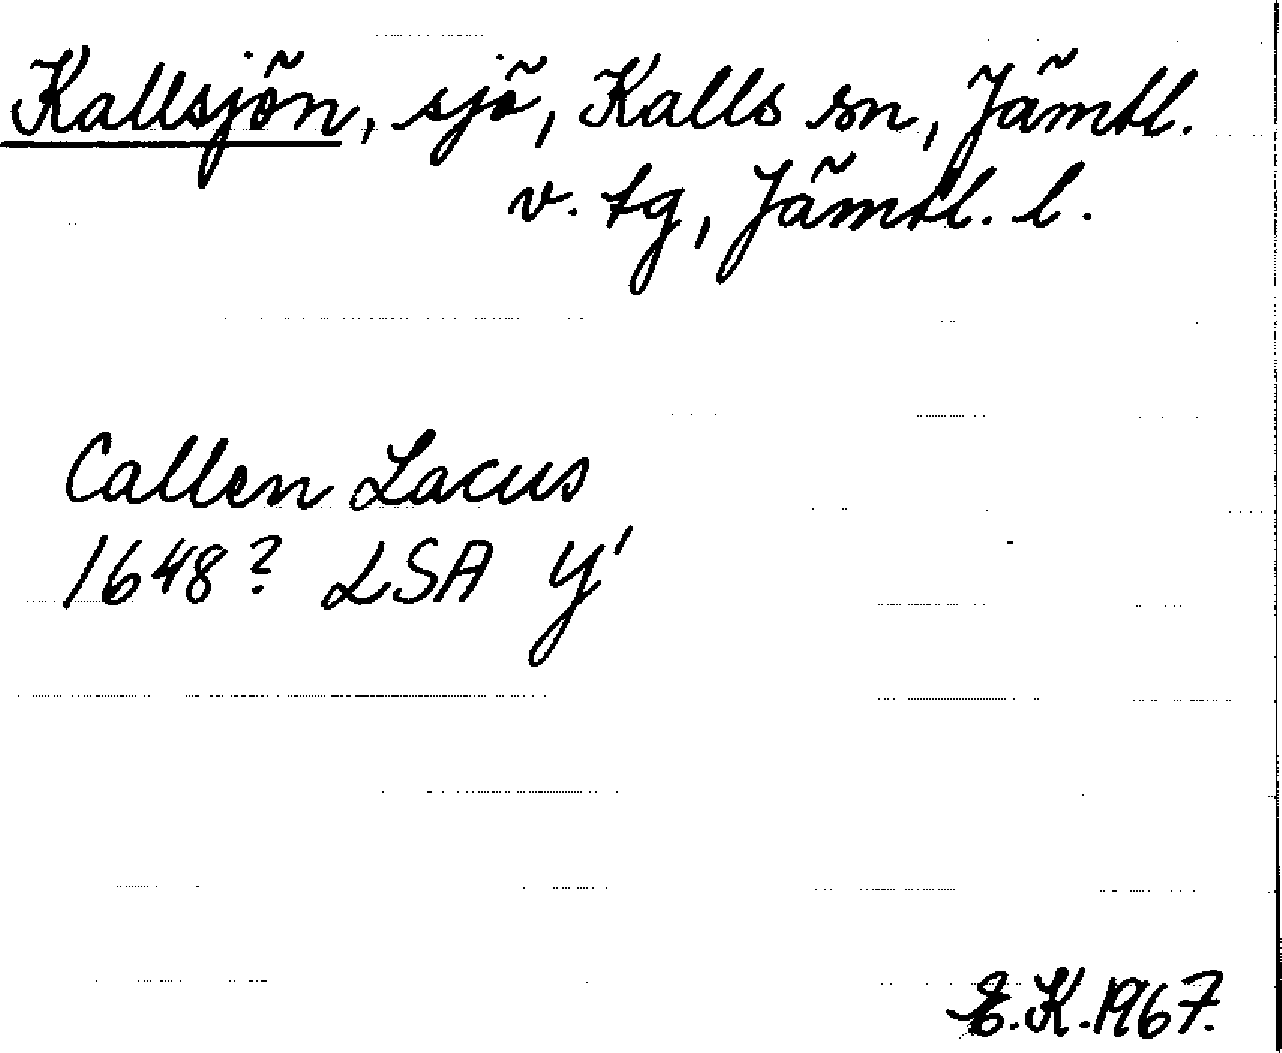 Kallsjön, sjö, Kalls sn, Jämtl.
v. tg, Jämtl. l.
Callen Lacus
1648? LSA y'
E.K. 1967.